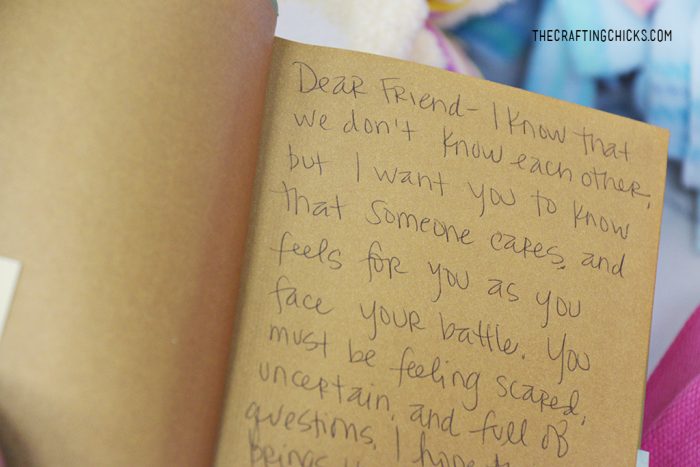 THECRAFTINGCHICKS.COM
Dear Friend - I know that
we don't know each other,
but I want you to know
that someone cares, and
feels for you as you
face your battle. You
must be feeling scared,
uncertain, and full of
questions. I hope
brings